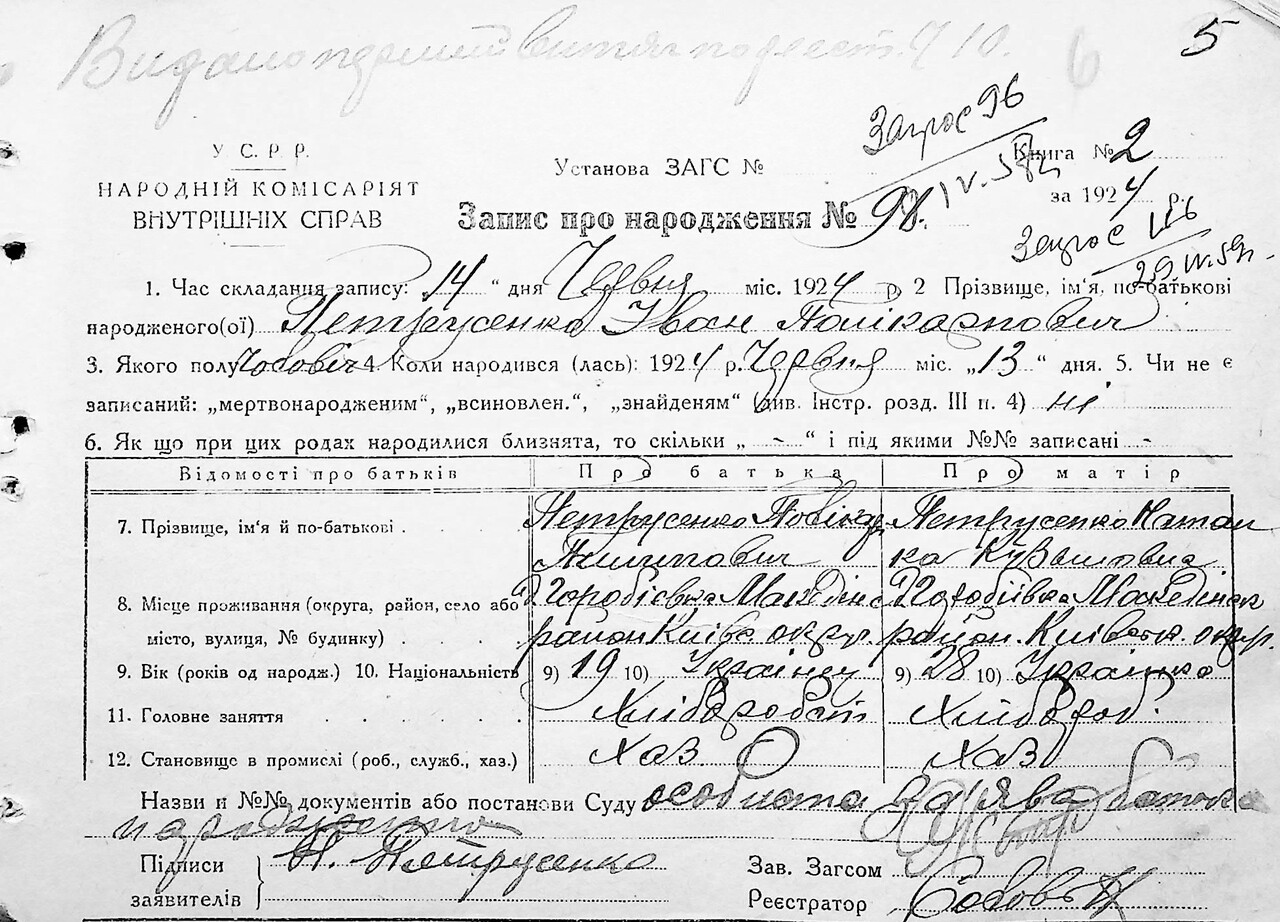 Видано перший витяг по реєст. 710.
6
5
Запис 96
IV. 58
У. С. Р. Р.
НАРОДНІЙ КОМІСАРІЯТ
ВНУТРІШНІХ СПРАВ
Установа ЗАГС №
Книга № 2
за 1924 р.
Запис про народження № 98.
Запис 116
29.IV.59
1. Час складання запису: „14“ дня Червня міс. 1924 р. 2 Прізвище, ім'я, по-батькові
народженого(ої) Петрусенко Іван Полікарпович
3. Якого полу Чоловіч 4. Коли народився (лась): 1924 р. Червня міс. „13“ дня. 5. Чи не є
записаний: „мертвонародженим“, „всиновлен.“, „знайденям“ (див. Інстр. розд. III п. 4) ні
6. Як що при цих родах народилися близнята, то скільки „ - “ і під якими №№ записані -
Відомості про батьків Про батька Про матір
7. Прізвище, ім'я й по-батькові Петрусенко Полікар Петрусенко
Пилипович
8. Місце проживання (округа, район, село або Горобіївка Македінс Горобіївка Македінск
місто, вулиця, № будинку) район Київс округ. район. Київськ. округ.
9. Вік (років од народж.) 10. Національність 9) 19 10) Українец 9) 28 10) Українка
11. Головне заняття Хлібороб Хлібороб.
12. Становище в промислі (роб., служб., хаз.) Хаз Хаз
Назви й №№ документів або постанови Суду особиста заява батька
Підписи П. Петрусенко
заявителів
Зав. Загсом
Реєстратор